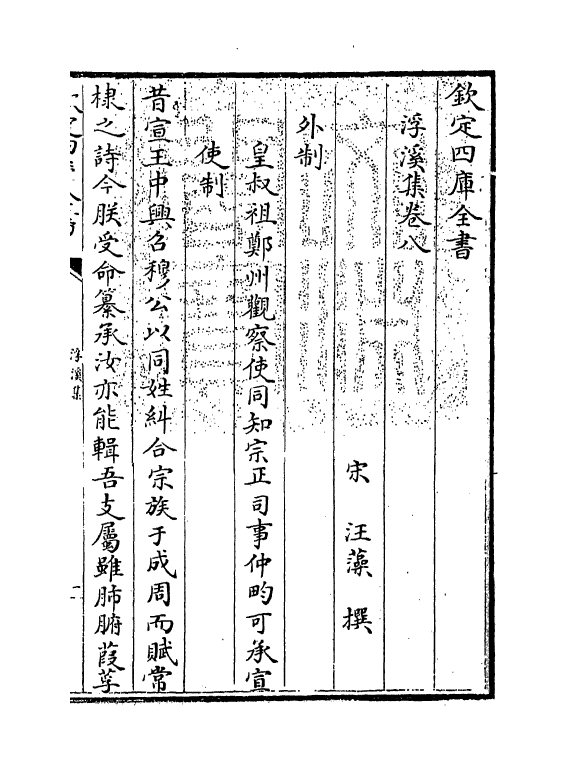 欽定四庫全書
浮溪集卷八
宋 汪藻 撰
外制
皇叔祖鄭州觀察使同知宗正司事仲畇可承宣
使制
昔宣王中興召穆公以同姓糾合宗族于成周而賦常
棣之詩今朕受命纂承汝亦能輯吾支屬雖肺腑葭莩
浮溪集